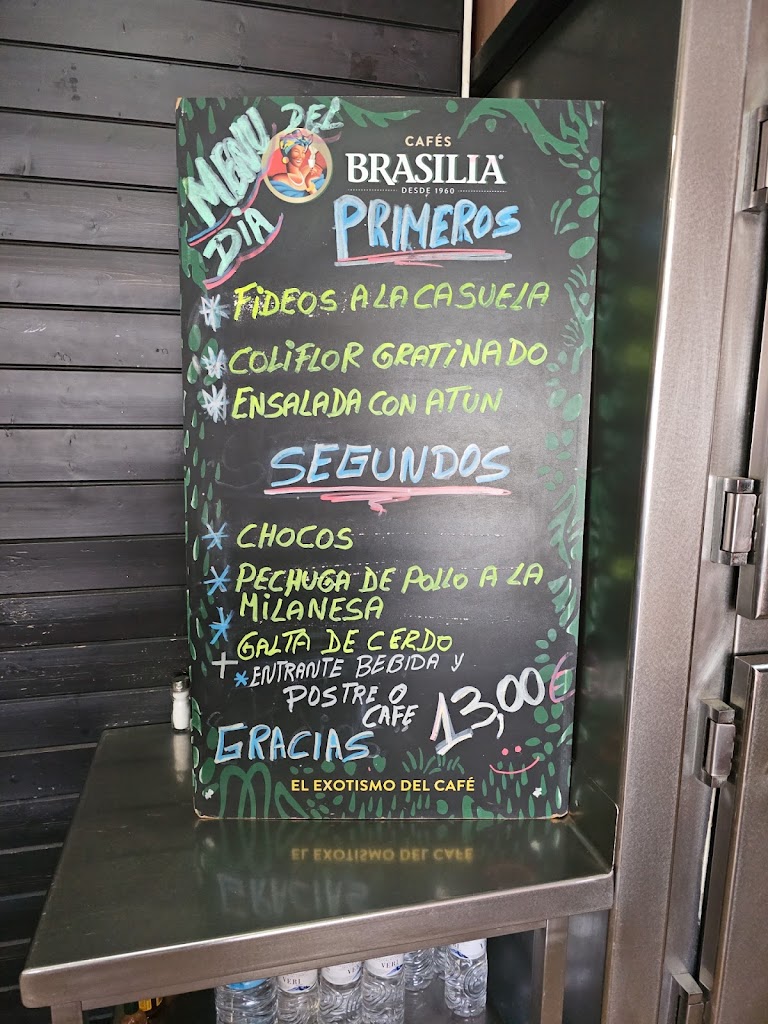 MENU DEL
DIA
CAFÉS
BRASILIA
DESDE 1960
PRIMEROS
* FiDEOS A LA CASUELA
* COLIFLOR GRATiNADO
* ENSALADA CON ATUN
SEGUNDOS
* CHOCOS
* PECHUGA DE POLLO A LA
MiLANESA
* GALTA DE CERDO
+ *ENTRANTE BEBIDA Y
POSTRE O
CAFE
13,00€
GRACIAS
EL EXOTISMO DEL CAFÉ
VERI
VERI
VERI